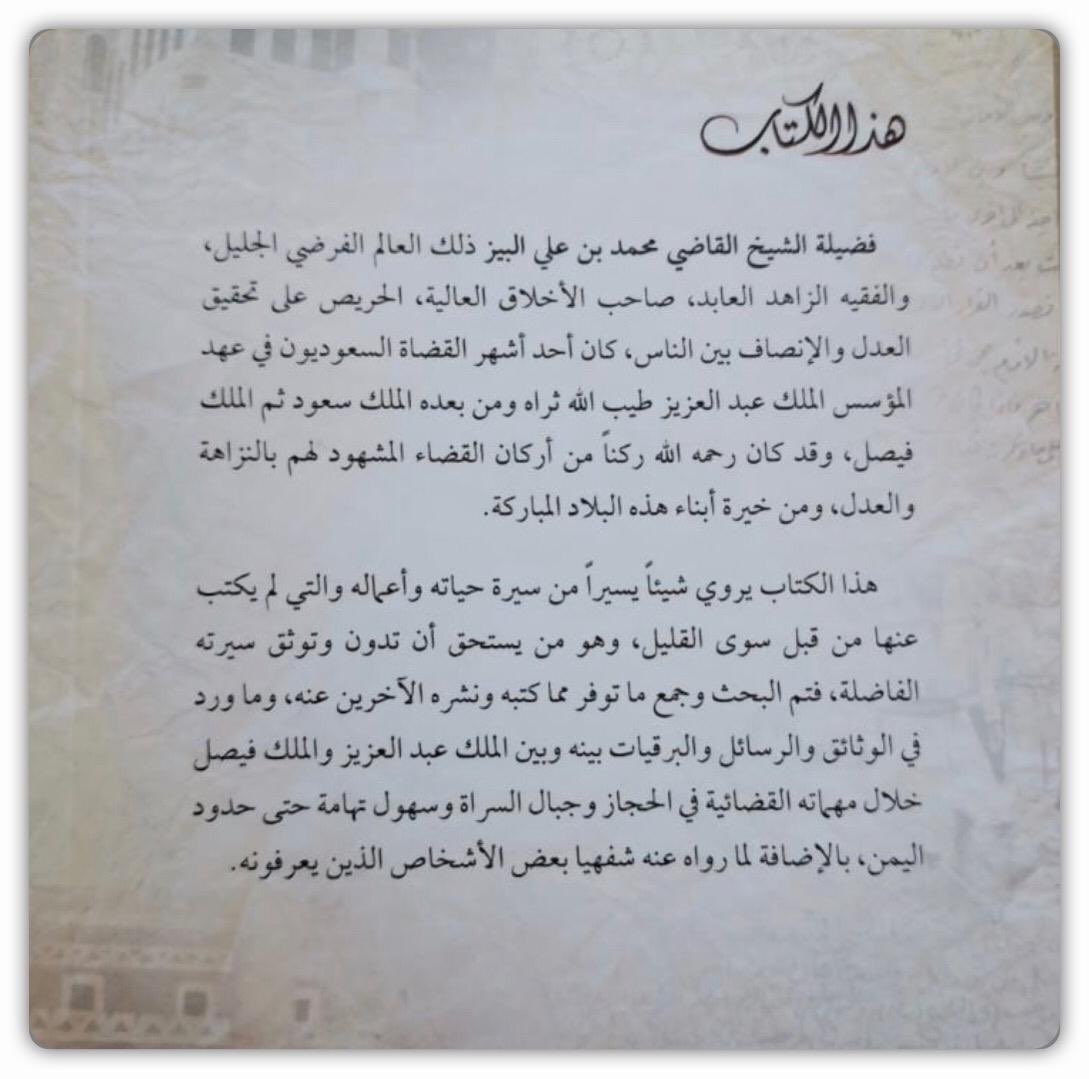 هذا الكتاب
فضيلة الشيخ القاضي محمد بن علي البيز ذلك العالم الفرضي الجليل،
والفقيه الزاهد العابد، صاحب الأخلاق العالية، الحريص على تحقيق
العدل والإنصاف بين الناس، كان أحد أشهر القضاة السعوديون في عهد
المؤسس الملك عبد العزيز طيب الله ثراه ومن بعده الملك سعود ثم الملك
فيصل، وقد كان رحمه الله ركناً من أركان القضاء المشهود لهم بالنزاهة
والعدل، ومن خيرة أبناء هذه البلاد المباركة.
هذا الكتاب يروي شيئاً يسيراً من سيرة حياته وأعماله والتي لم يكتب
عنها من قبل سوى القليل، وهو من يستحق أن تدون وتوثق سيرته
الفاضلة، فتم البحث وجمع ما توفر مما كتبه ونشره الآخرين عنه، وما ورد
في الوثائق والرسائل والبرقيات بينه وبين الملك عبد العزيز والملك فيصل
خلال مهماته القضائية في الحجاز وجبال السراة وسهول تهامة حتى حدود
اليمن، بالإضافة لما رواه عنه شفهيا بعض الأشخاص الذين يعرفونه.